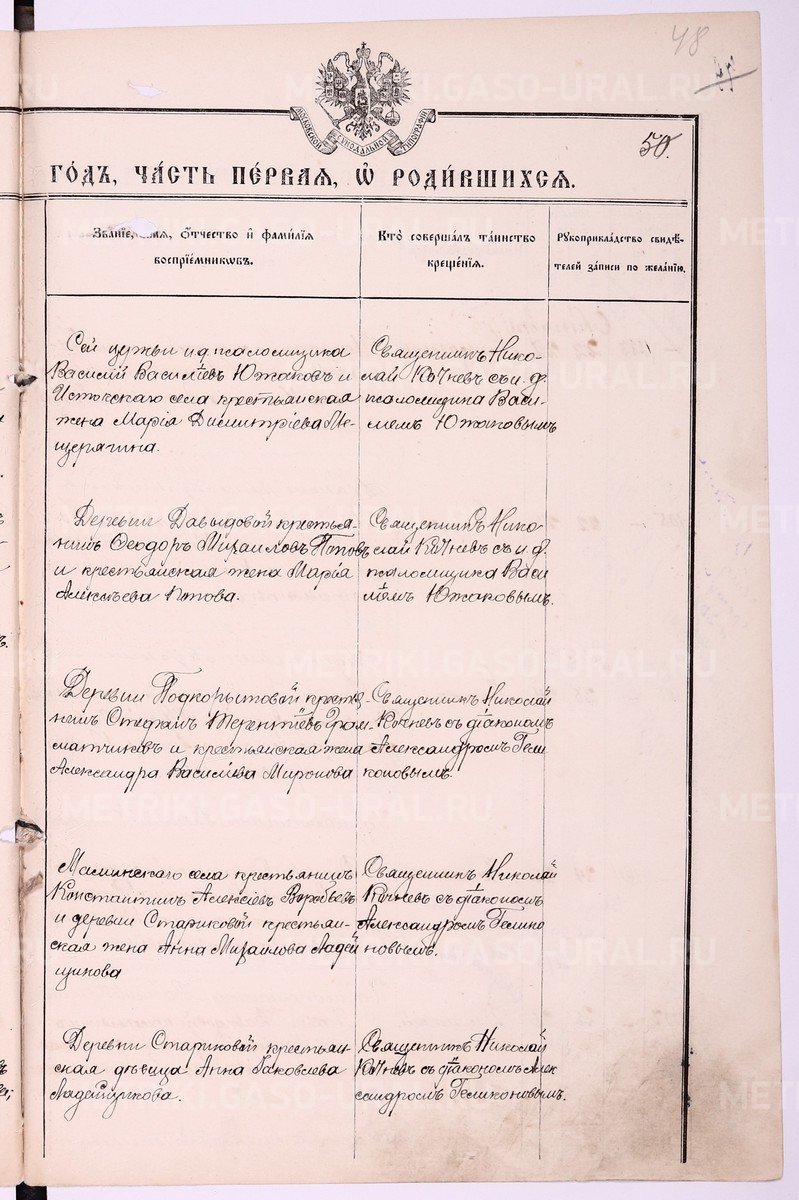 48
50.
МОСКОВСКОЙ СѴНОДАЛЬНОЙ ТИПОГРАФІИ
ГО́ДЪ, ЧА́СТЬ ПЕ́РВАЯ, Ѽ РОДИ́ВШИХСЯ.
Зва́нїе, имя, о́тчество и҆ фами́лїя
воспрїе́мникѡвъ.
Кто̀ соверша́лъ та́инство
креще́нїя.
Рукоприкла́дство свидѣ́-
телей записи по жела́нїю.
Сей цужьи и.д. псаломщика
Василій Василіевъ Южаковъ и
Истокскаго села крестьянская
жена Марія Димитріева Ме-
щерягина.
Священникъ Нико-
лай Кочневъ съ и. д.
псаломщика Васи-
лiемъ Южаковымъ
Деревни Давыдовой крестья-
нинъ Ѳеодоръ Михаиловъ Поповъ
и крестьянская жена Марія
Алексѣева Попова.
Священникъ Нико
лай Кочневъ съ и. д.
псаломщика Васи
ліемъ Южаковымъ.
Деревни Подкорытовой крестья-
нинъ Стефанъ Терентіевъ Грам-
матчиковъ и крестьянская жена
Александра Василіева Миронова
Священникъ Николай
Кочневъ съ діакономъ
Александромъ Гели
коновымъ.
Маминскаго села крестьянинъ
Константинъ Алексіевъ Воробьевъ
и деревни Стариковой крестьян-
ская жена Анна Михаилова Ладей
щикова
Священникъ Николай
Кочневъ съ діакономъ
Александромъ Гелико
новымъ.
Деревни Стариковой крестьян-
ская дѣвица Анна Іаковлева
Ладейщикова.
Священникъ Николай
Кочневъ съ діакономъ Алек
сандромъ Геликоновымъ.
METRIKI.GASO-URAL.RU